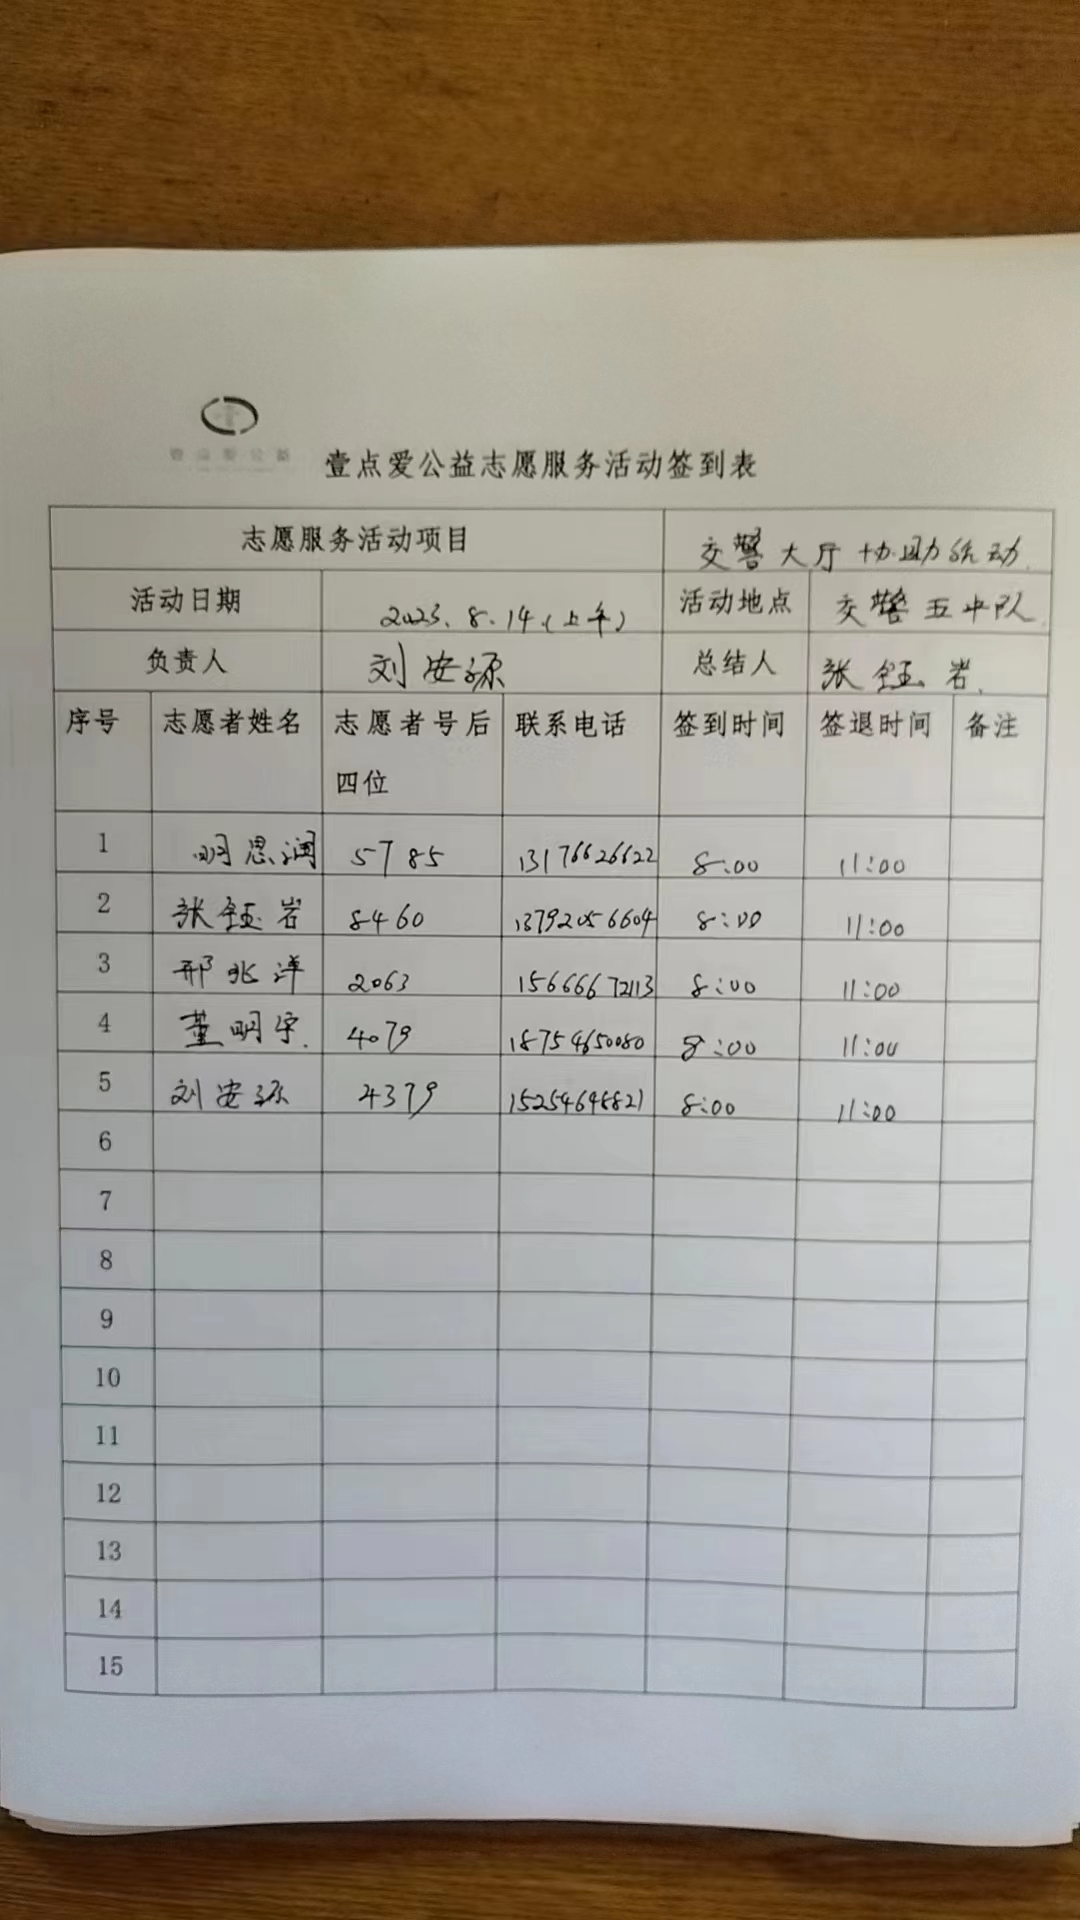 壹点爱公益志愿服务活动签到表
志愿服务活动项目 交警大厅协助活动.
活动日期 2023.8.14(上午) 活动地点 交警五中队
负责人 刘安源 总结人 张钰岩.
序号 志愿者姓名 志愿者号后四位 联系电话 签到时间 签退时间 备注
1 明思润 5785 13176626622 8:00 11:00
2 张钰岩 8460 13792056604 8:00 11:00
3 邢兆洋 2063 15666672113 8:00 11:00
4 董明宇. 4079 18754650080 8:00 11:00
5 刘安源 4379 15254648821 8:00 11:00
6
7
8
9
10
11
12
13
14
15